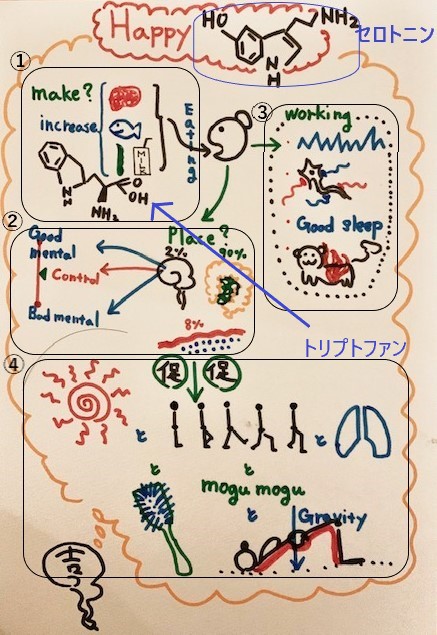 Happy
HO
NH₂
N
H
セロトニン
①
make?
increase
Milk
Eating
N
H
O
OH
NH₂
③
working
Good sleep
②
Good
mental
Control
Bad mental
Place?
2%
90%
8%
トリプトファン
④
促 促
と
と
と
と
mogu mogu
と
Gravity